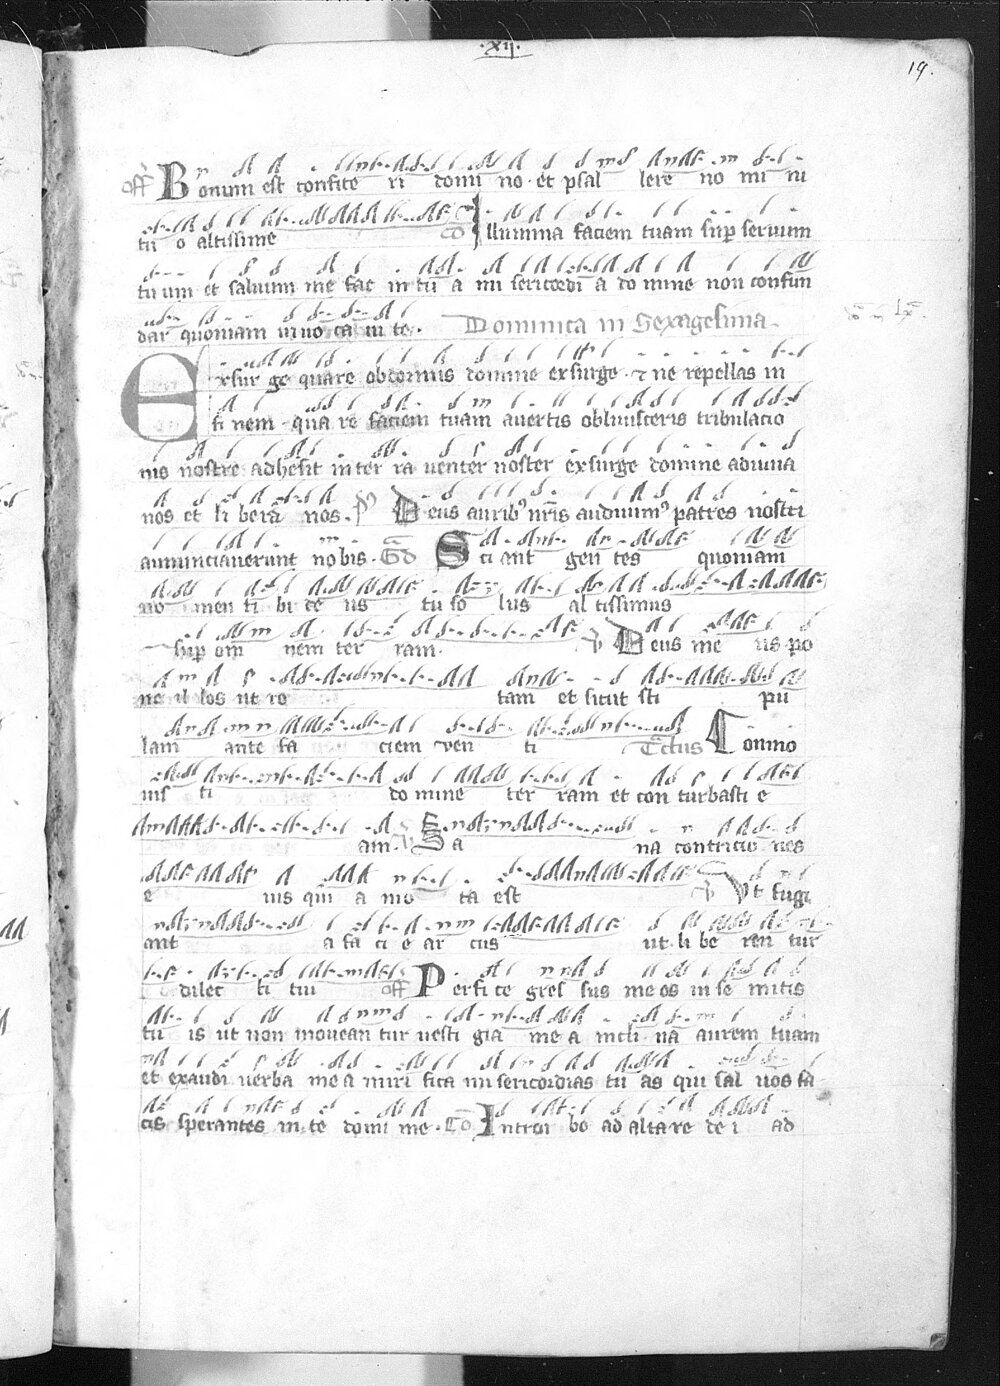 ·xij·
19.
off Bonum est confite ri domi no et psal lere no mi ni
tu o altissime co Illumina faciem tuam sup servum
tu um et salvum me fac in tu a mi sericordi a do mine non confun
dar quoniam invo ca vi te. Dominica in Sexagesima.
Exsur ge quare obdormis domine exsurge et ne repellas in
fi nem qua re faciem tuam avertis oblivisceris tribulacio
nis nostre adhesit in ter ra venter noster exsurge domine adiuva
nos et li bera nos. Deus aurib9 nris audivim9 patres nostri
annunciaverunt nobis. Gd Sci ant gen tes quoniam
no men ti bi de us tu so lus al tissimus
sup om nem ter ram. Deus me us po
ne il los ut ro tam et sicut sti pu
lam ante fa ciem ven ti Tctus Conmo
vis ti do mine ter ram et con turbasti e
am. Sa na contricio nes
e ius qui a mo ta est Ut fugi
ant a fa ci e ar cus ut li be ren tur
dilec ti tui off Perfi ce gres sus me os in se mitis
tu is ut non movean tur vesti gia me a incli na aurem tuam
et exaudi verba me a miri fica mi sericordias tu as qui sal vos fa
cis sperantes in te domi me. Co Introi bo ad altare de i ad